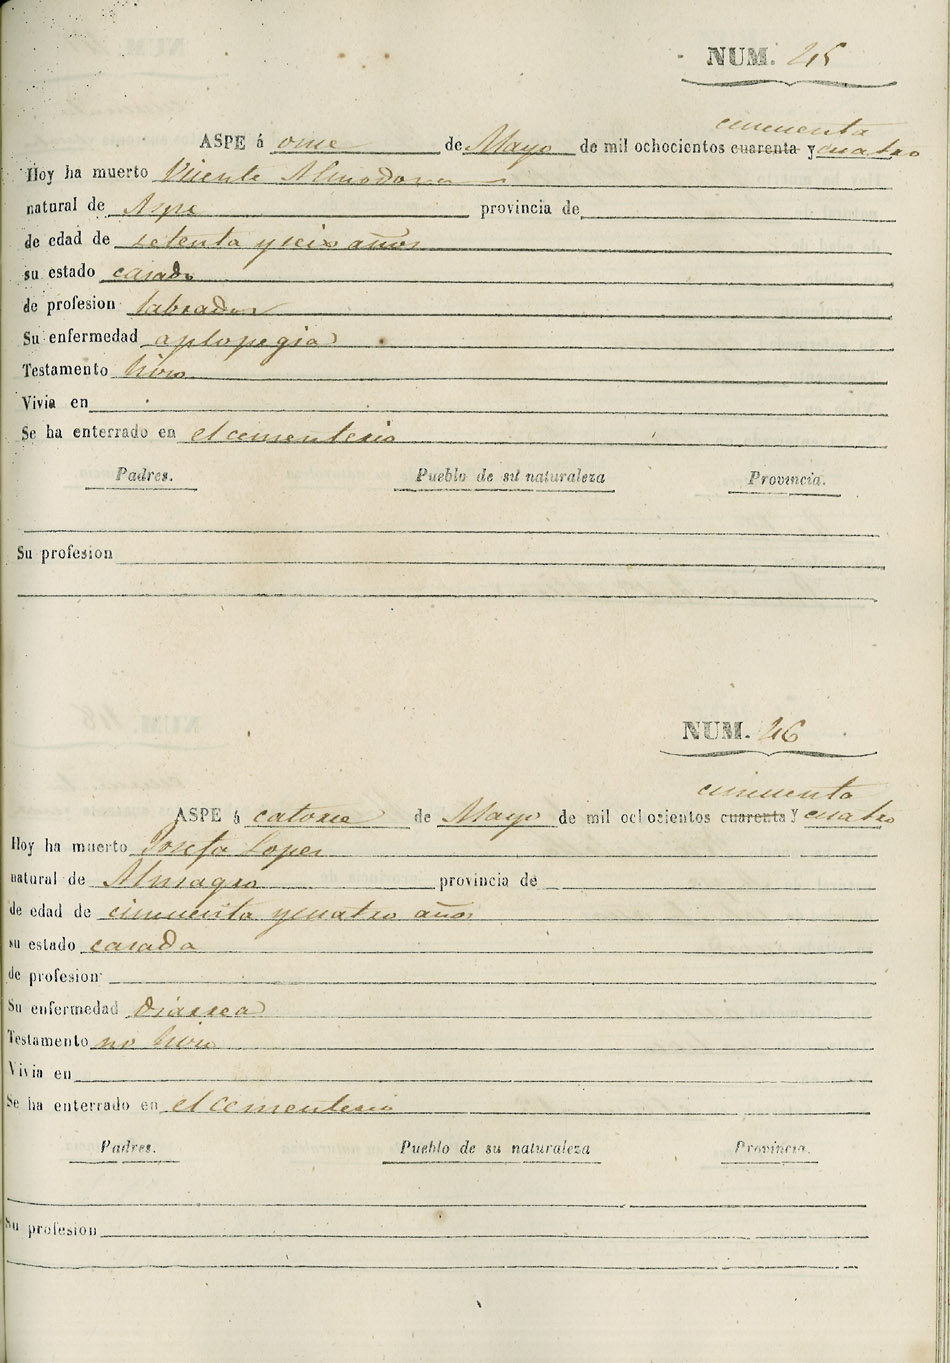 NUM. 45
cincuenta
ASPE á once de Mayo de mil ochocientos cuarenta y cuatro
Hoy ha muerto Vicente Almodovar
natural de Aspe provincia de
de edad de setenta y seis años
su estado casado
de profesion labrador
Su enfermedad aplopegia
Testamento hizo
Vivia en
Se ha enterrado en el cementerio
Padres. Pueblo de su naturaleza Provincia.
Su profesion
NUM. 46
cincuenta
ASPE á catorce de Mayo de mil ochosientos cuarenta y cuatro
Hoy ha muerto Josefa Lopez
natural de Almagro provincia de
de edad de cincuenta y cuatro años
su estado casada
de profesion
Su enfermedad diarrea
Testamento no hizo
Vivia en
Se ha enterrado en el cementerio
Padres. Pueblo de su naturaleza Provincia.
Su profesion